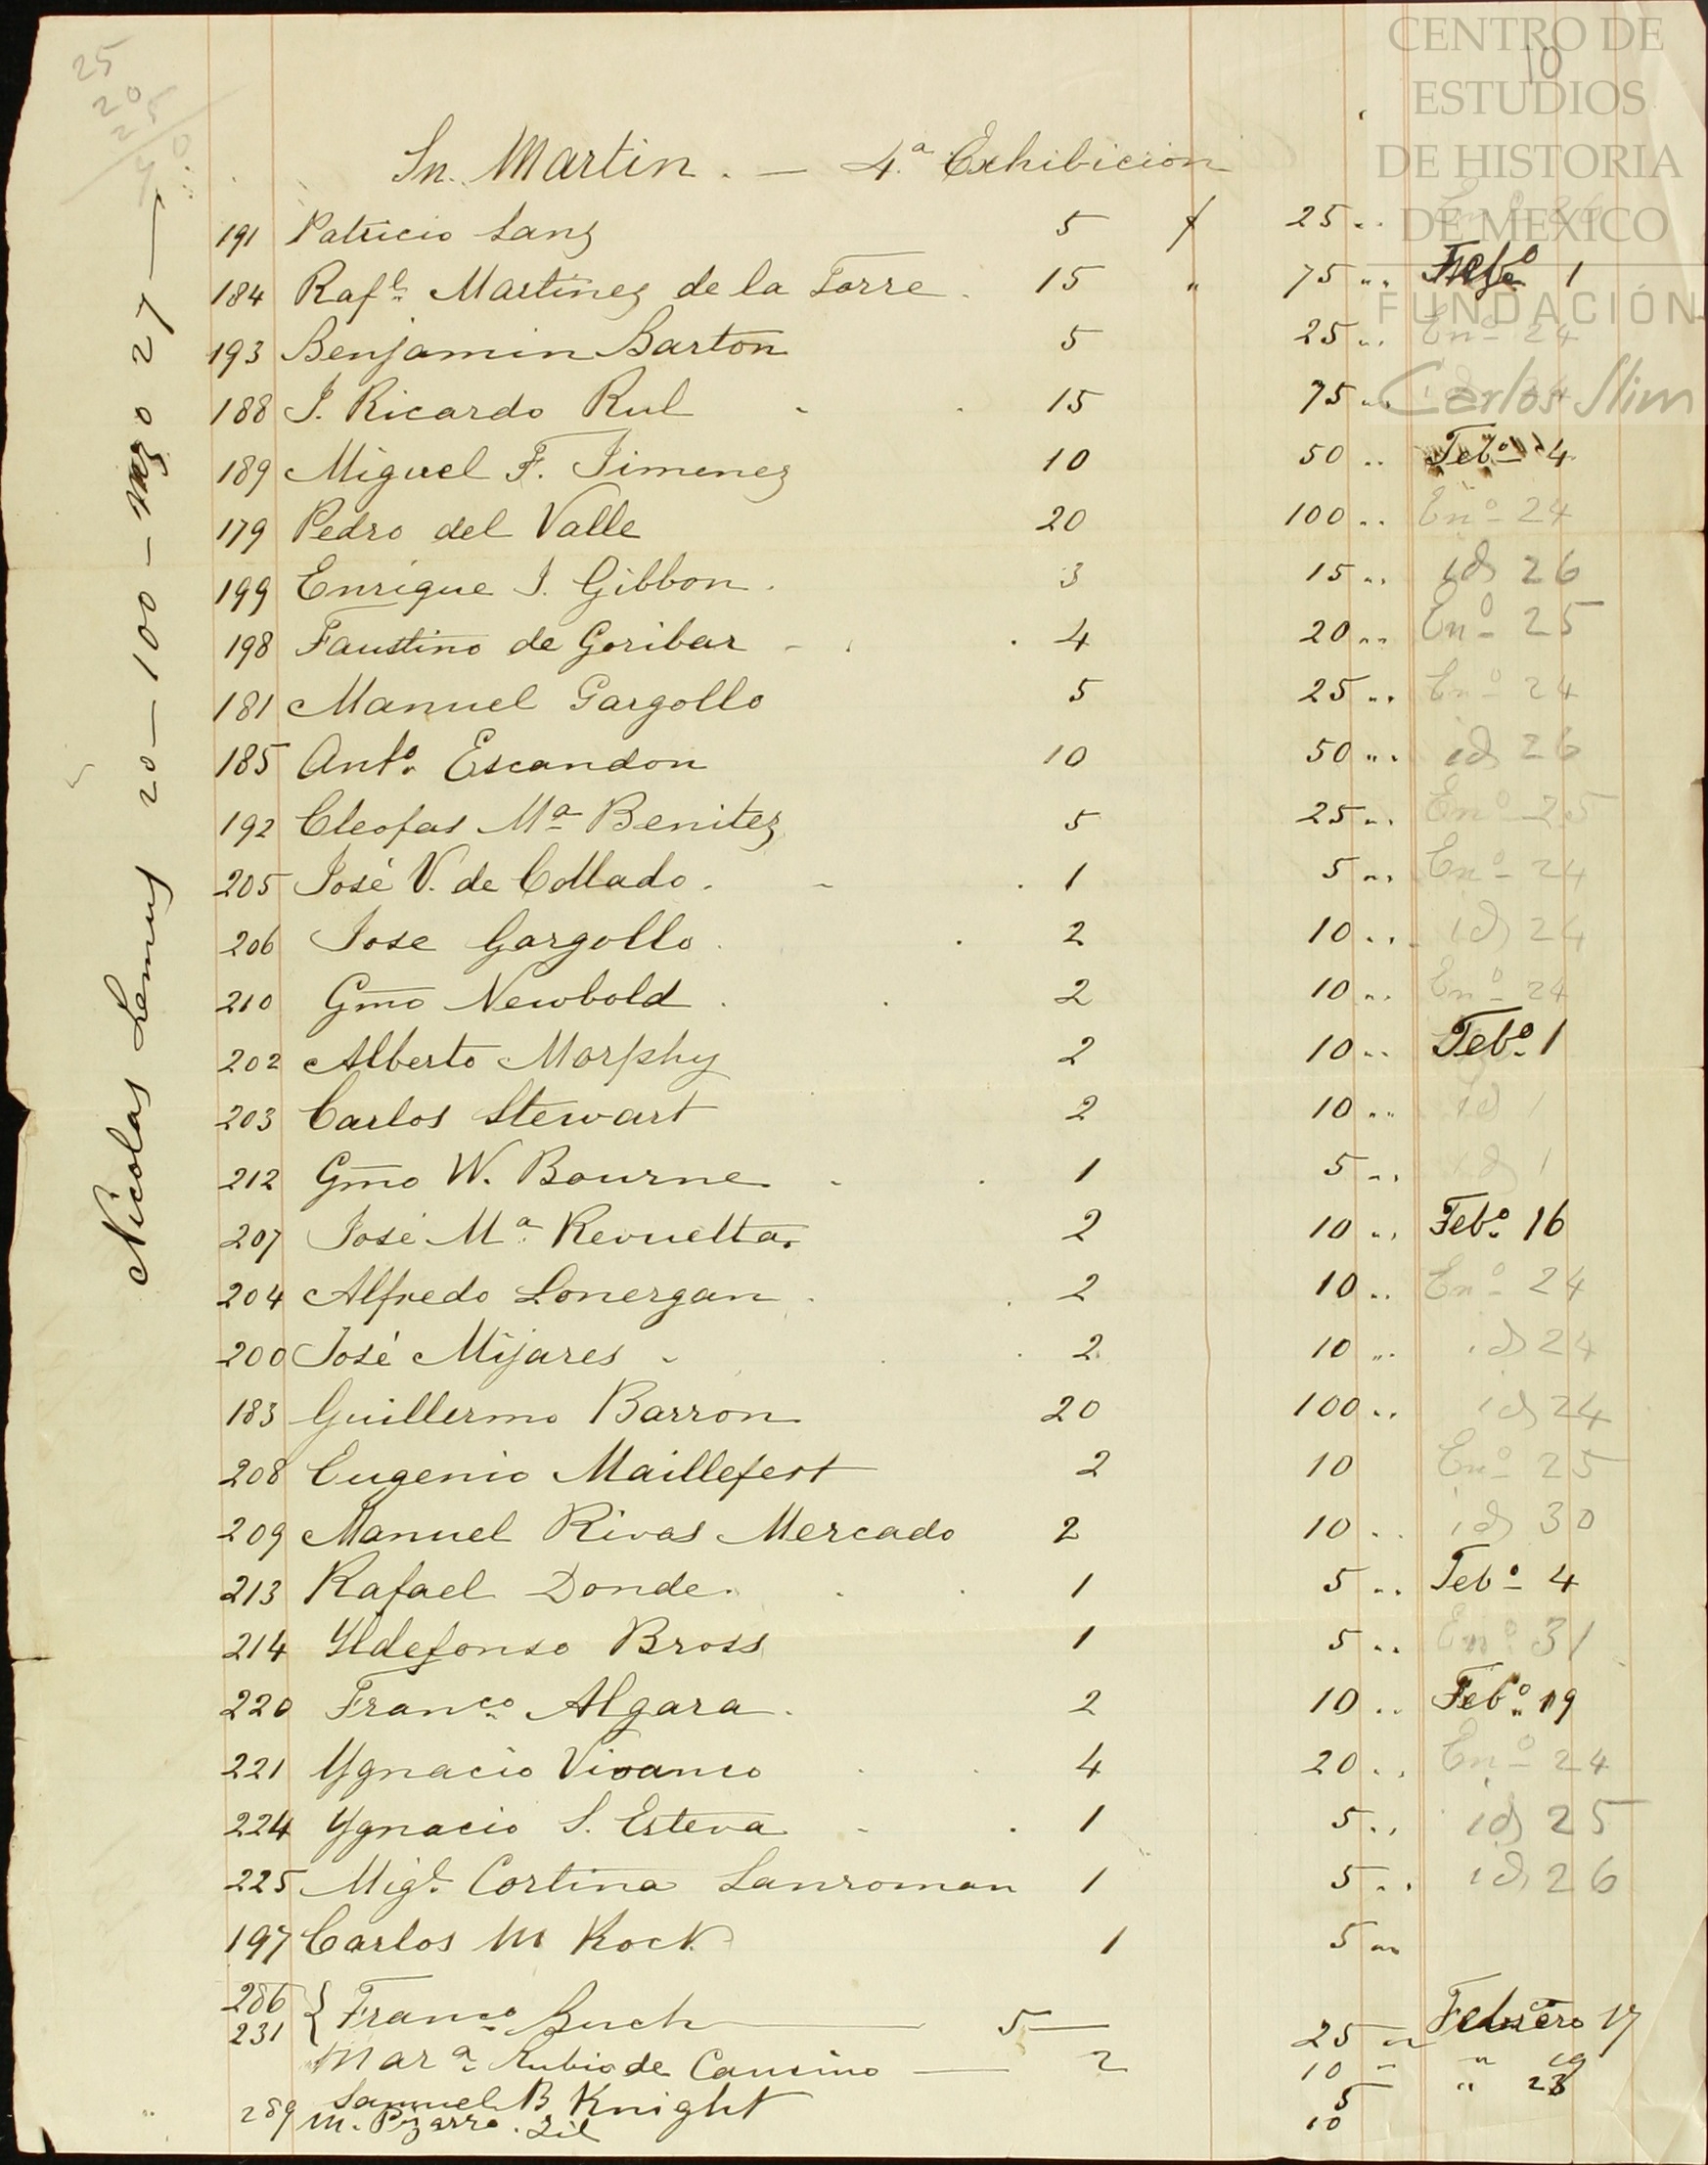 CENTRO DE
ESTUDIOS
DE HISTORIA
DE MEXICO
FUNDACIÓN
Carlos Slim
10
25
20
25
Sn. Martin. — 4.ª Exhibicion
191 Patricio Sanz 5 $ 25 ..
184 Rafl. Martinez de la Torre. 15 " 75 .. Febo. 1
193 Benjamin Barton 5 25 .. Eno. 24
188 J. Ricardo Rul 15 75 ..
189 Miguel F. Jimenez 10 50 .. Febo. 4
179 Pedro del Valle 20 100 .. Eno. 24
199 Enrique J. Gibbon. 3 15 .. id 26
198 Faustino de Goribar 4 20 .. Eno. 25
181 Manuel Gargollo 5 25 .. Eno. 24
185 Anto. Escandon 10 50 .. id 26
192 Cleofas Ma. Benitez 5 25 .. Eno. 25
205 José V. de Collado. 1 5 .. Eno. 24
206 Jose Gargollo 2 10 .. id 24
210 Gmo Newbold 2 10 .. Eno. 24
202 Alberto Morphy 2 10 .. Febo. 1
203 Carlos Stewart 2 10 .. id 1
212 Gmo W. Bourne 1 5 .. id 1
207 José Ma. Revuelta. 2 10 .. Febo. 16
204 Alfredo Lonergan 2 10 .. Eno. 24
200 José Mijares 2 10 .. id 24
183 Guillermo Barron 20 100 .. id 24
208 Eugenio Maillefert 2 10 Eno. 25
209 Manuel Rivas Mercado 2 10 .. id 30
213 Rafael Donde. 1 5 .. Febo. 4
214 Yldefonso Bross 1 5 .. Eno. 31
220 Franco. Algara. 2 10 .. Febo. 19
221 Ygnacio Vivanco 4 20 .. Eno. 24
224 Ygnacio S. Esteva 1 5 .. id 25
225 Migl. Cortina Sanroman 1 5 .. id 26
197 Carlos M Kock 1 5 ..
286
231 } Franco. Buch — 5 — 25 .. Febrero 17
Mara. Rubio de Cancino — 2 10 " 19
Samuel B Knight 5 " 23
289 M. Pizarro. Gil 10
Nicolas Lemus 20 — 100 — Mzo 27 —